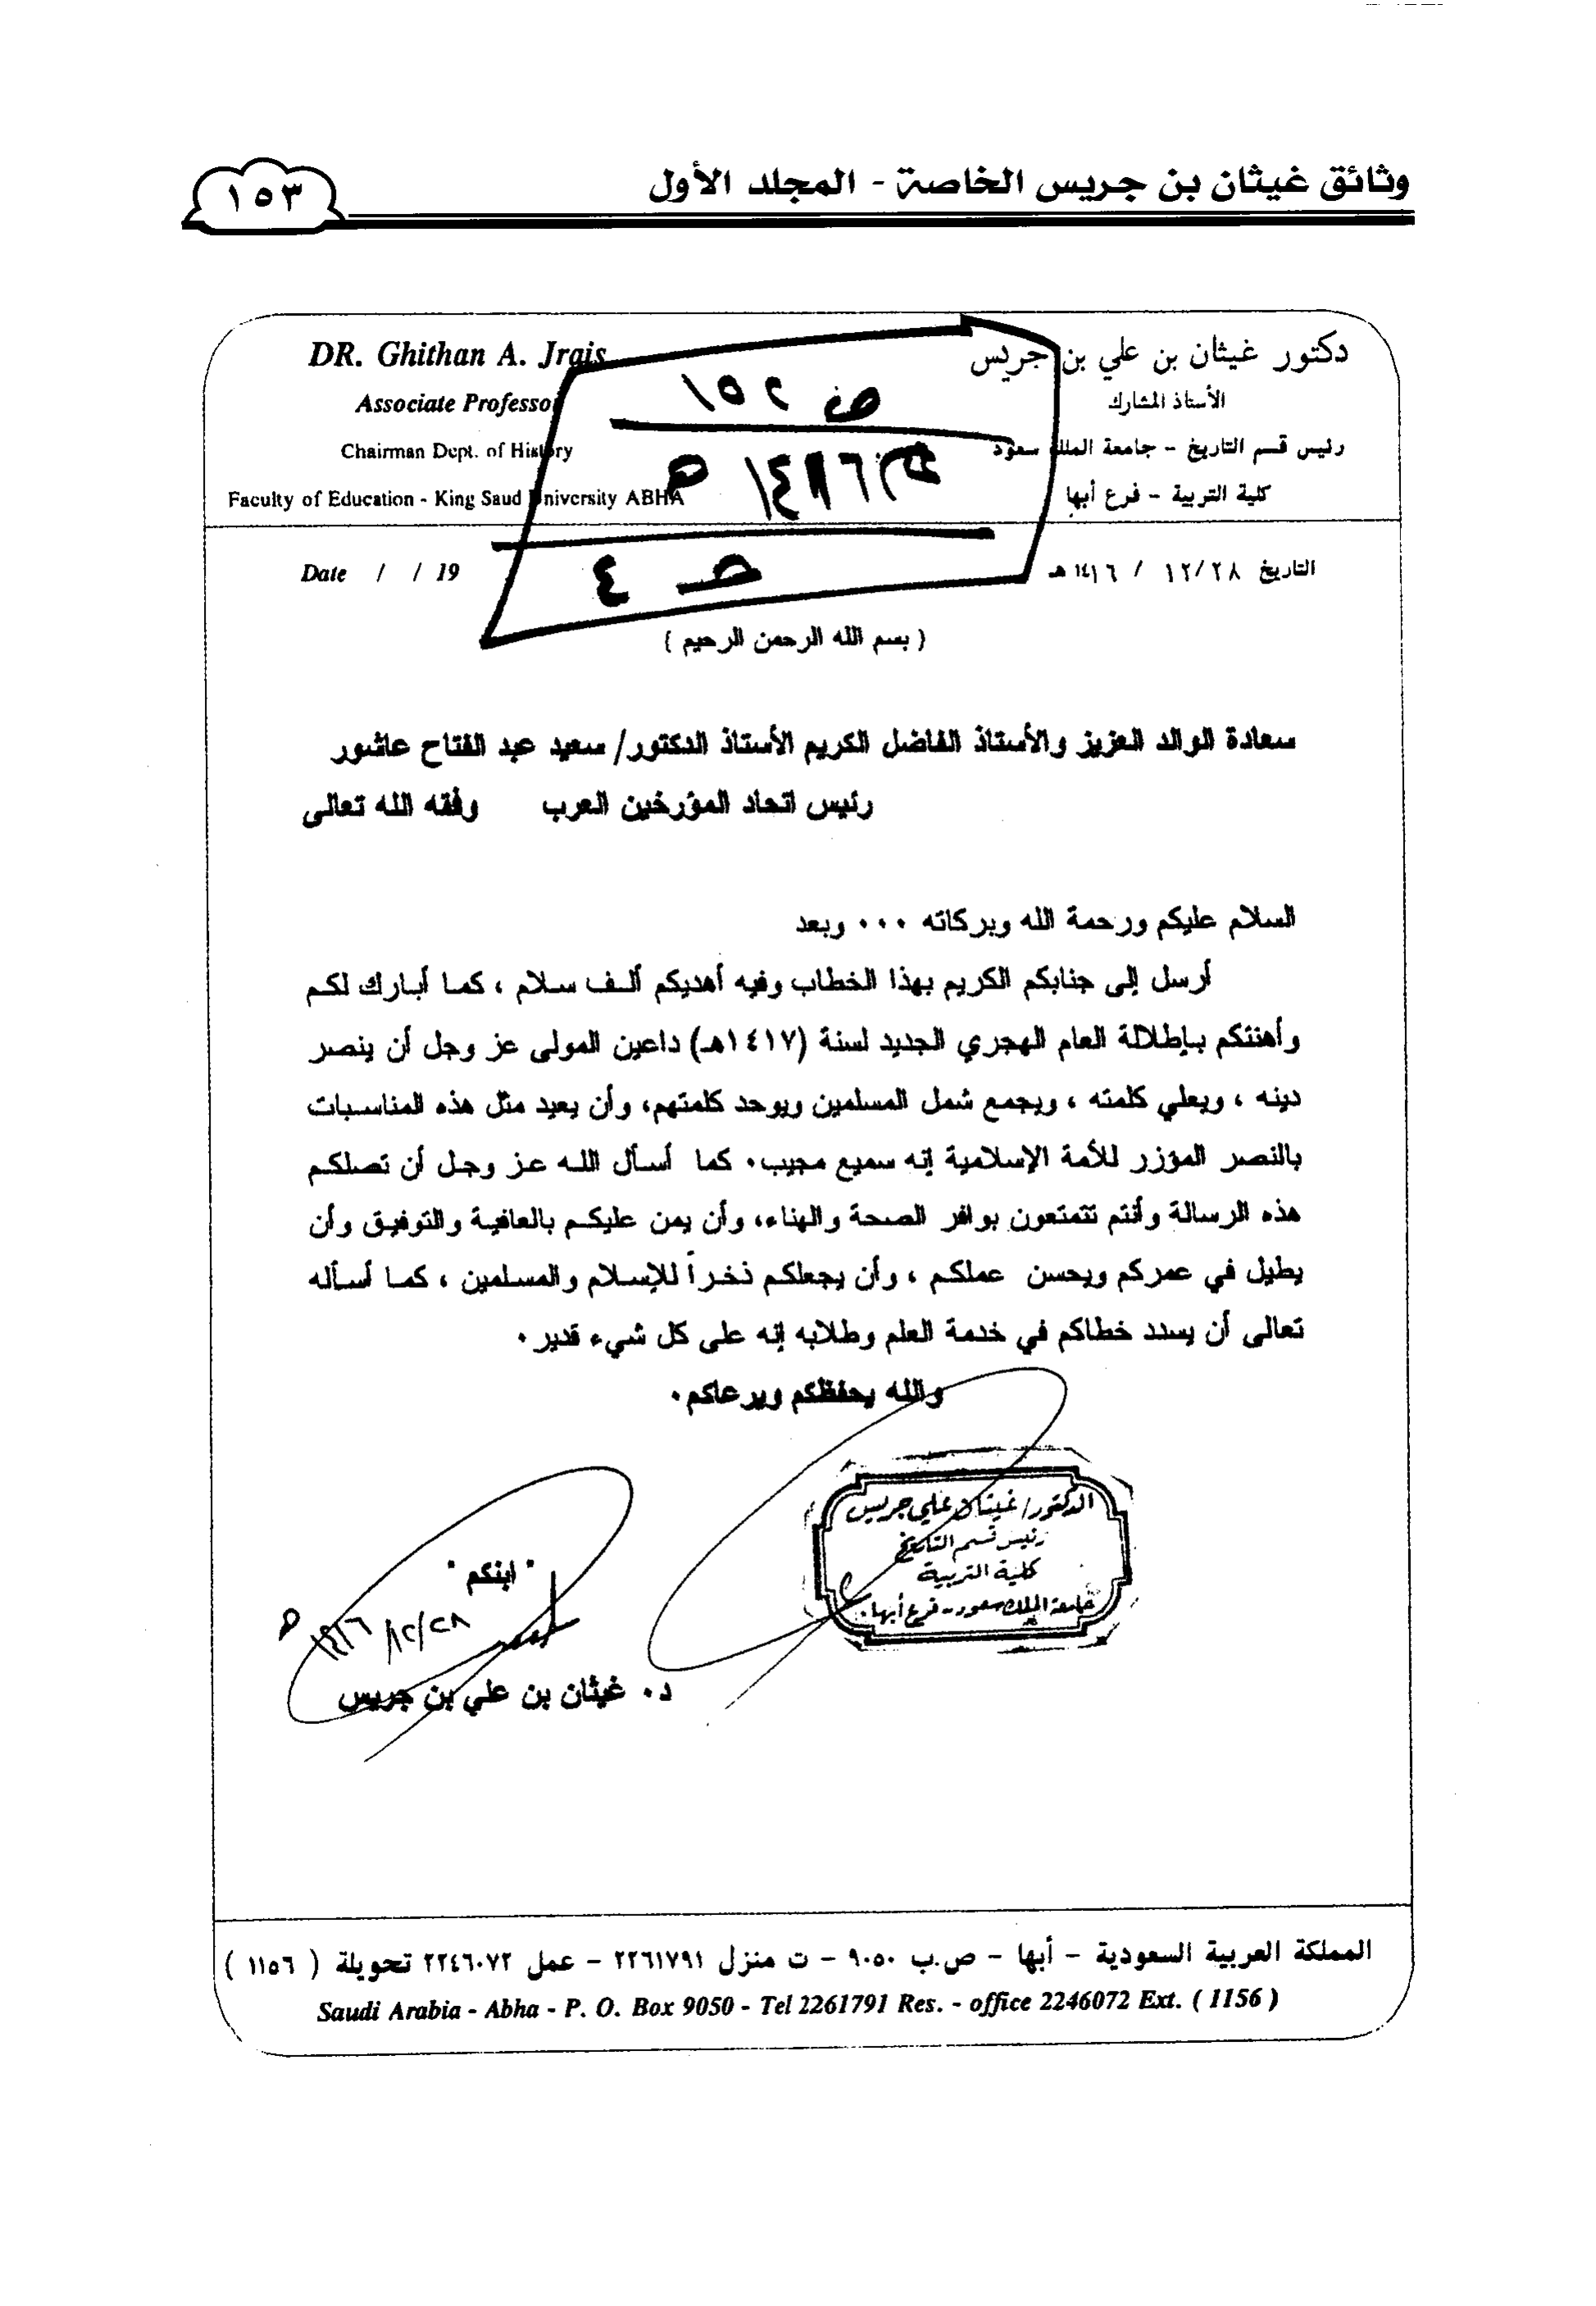 وثائق غيثان بن جريس الخاصة - المجلد الأول
١٥٣
DR. Ghithan A. Jrais
Associate Professor
Chairman Dept. of History
Faculty of Education - King Saud University ABHA
دكتور غيثان بن علي بن جريس
الأستاذ المشارك
رئيس قسم التاريخ - جامعة الملك سعود
كلية التربية - فرع أبها
١٥٢
١٤١٦ هـ
ص ٤
Date / / 19
التاريخ ١٢/٢٨ / ١٤١٦هـ
( بسم الله الرحمن الرحيم )
سعادة الوالد العزيز والأستاذ الفاضل الكريم الأستاذ الدكتور/ سعيد عبد الفتاح عاشور
رئيس اتحاد المؤرخين العرب وفقه الله تعالى
السلام عليكم ورحمة الله وبركاته ٠٠٠ وبعد
أرسل إلى جنابكم الكريم بهذا الخطاب وفيه أهديكم ألف سلام ، كما أبارك لكم
وأهنئكم بإطلالة العام الهجري الجديد لسنة (١٤١٧هـ) داعين المولى عز وجل أن ينصر
دينه ، ويعلي كلمته ، ويجمع شمل المسلمين ويوحد كلمتهم، وأن يعيد مثل هذه المناسبات
بالنصر المؤزر للأمة الإسلامية إنه سميع مجيب٠ كما أسأل الله عز وجل أن تصلكم
هذه الرسالة وأنتم تتمتعون بوافر الصحة والهناء، وأن يمن عليكم بالعافية والتوفيق وأن
يطيل في عمركم ويحسن عملكم ، وأن يجعلكم ذخراً للإسلام والمسلمين ، كما أسأله
تعالى أن يسدد خطاكم في خدمة العلم وطلابه إنه على كل شيء قدير ٠
والله يحفظكم ويرعاكم ٠
الدكتور/ غيثان علي جريس
رئيس قسم التاريخ
كلية التربية
جامعة الملك سعود - فرع أبها
" ابنكم "
١٢/٢٨/ ١٤١٦ هـ
د٠ غيثان بن علي بن جريس
المملكة العربية السعودية - أبها - ص.ب ٩٠٥٠ - ت منزل ٢٢٦١٧٩١ - عمل ٢٢٤٦٠٧٢ تحويلة ( ١١٥٦ )
Saudi Arabia - Abha - P. O. Box 9050 - Tel 2261791 Res. - office 2246072 Ext. ( 1156 )